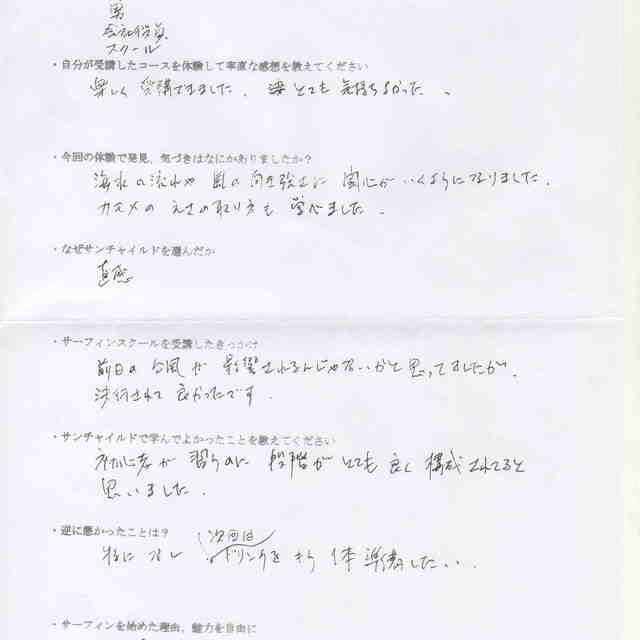 男
会社役員
スクール
・自分が受講したコースを体験して率直な感想を教えてください
楽しく受講できました。海とても気持ちよかった。
・今回の体験で発見、気づきはなにかありましたか？
海水の流れや風の向き強さに関心がいくようになりました。
カモメのえさの取り方も学べました。
・なぜサンチャイルドを選んだか
直感
・サーフィンスクールを受講したきっかけ
前日の台風が影響されるんじゃないかと思ってましたが、
決行されて良かったです。
・サンチャイルドで学んでよかったことを教えてください
初心者が習うのに段階がとても良く構成されてると
思いました。
・逆に悪かったことは？
特になし 次回はドリンクをもう1本準備したい。
・サーフィンを始めた理由、魅力を自由に